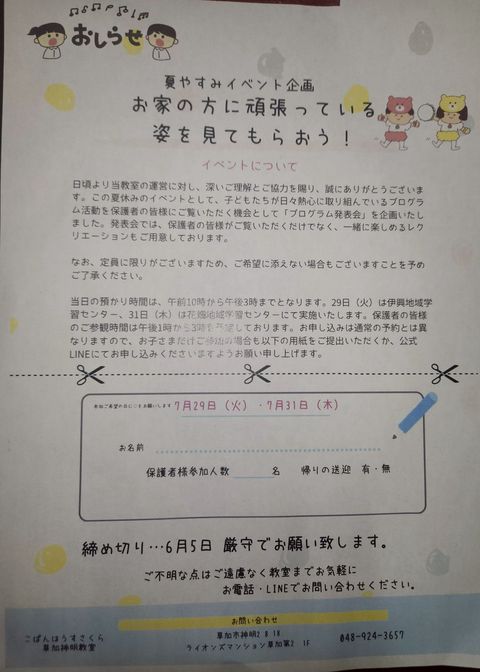 おしらせ
夏やすみイベント企画
お家の方に頑張っている
姿を見てもらおう！
イベントについて
日頃より当教室の運営に対し、深いご理解とご協力を賜り、誠にありがとうございま
す。この夏休みのイベントとして、子どもたちが日々熱心に取り組んでいるプログラ
ム活動を保護者の皆様にご覧いただく機会として「プログラム発表会」を企画いたし
ました。発表会では、保護者の皆様がご覧いただくだけでなく、一緒に楽しめるレク
リエーションもご用意しております。
なお、定員に限りがございますため、ご希望に添えない場合もございますことを予め
ご了承ください。
当日の預かり時間は、午前10時から午後3時までとなります。29日（火）は伊興地域学
習センター、31日（木）は花畑地域学習センターにて実施いたします。保護者の皆様
のご参観時間は午後1時から3時を予定しております。お申し込みは通常の予約とは異
なりますので、お子さまだけご参加の場合も以下の用紙をご提出いただくか、公式
LINEにてお申し込みくださいますようお願い申し上げます。
参加ご希望の日に○をお願いします 7月29日（火）・7月31日（木）
お名前
保護者様参加人数 名 帰りの送迎 有・無
締め切り…6月5日 厳守でお願い致します。
ご不明な点はご遠慮なく教室までお気軽に
お電話・LINEでお問い合わせください。
お問い合わせ
こぱんはうすさくら
草加神明教室
草加市神明2 8 18
ライオンズマンション草加第2 1F
048-924-3657